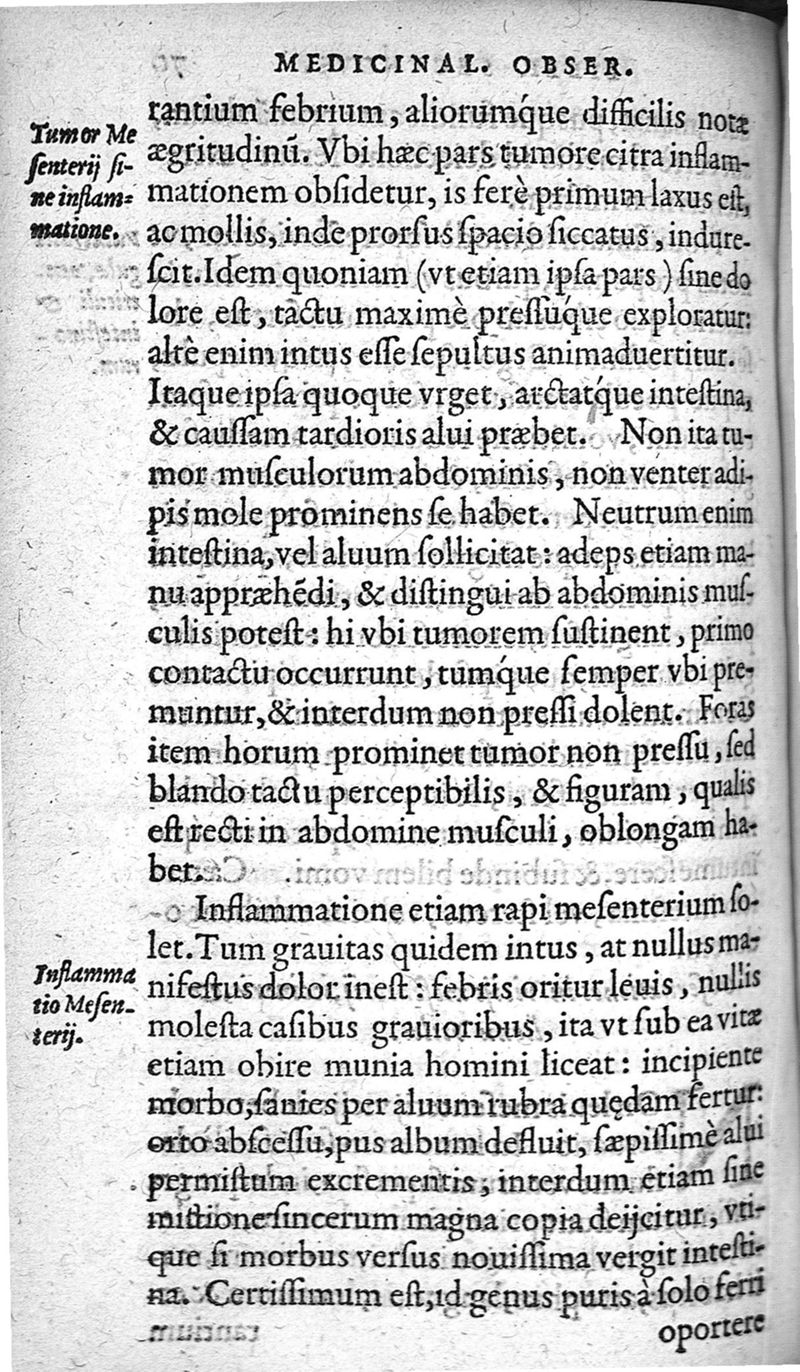 MEDICINAL. OBSER.
rantium febrium, aliorumq́ue difficilis notæ
Tumor Me
ſenterij ſi-
ne inflam-
matione.
ægritudinũ. Vbi hæc pars tumore citra inflam-
mationem obſidetur, is ferè primum laxus eſt,
ac mollis, inde prorſus ſpacio ſiccatus, indure-
ſcit. Idem quoniam (vt etiam ipſa pars) ſine do
lore eſt, tactu maximè preſſuq́ue exploratur:
altè enim intus eſſe ſepultus animaduertitur.
Itaque ipſa quoque vrget, arctatq́ue inteſtina,
& cauſſam tardioris alui præbet. Non ita tu-
mor muſculorum abdominis, non venter adi-
pis mole prominens ſe habet. Neutrum enim
inteſtina, vel aluum ſollicitat: adeps etiam ma-
nu appræhẽdi, & diſtingui ab abdominis muſ-
culis poteſt: hi vbi tumorem ſuſtinent, primo
contactu occurrunt, tumq́ue ſemper vbi pre-
muntur, & interdum non preſſi dolent. Foras
item horum prominet tumor non preſſu, ſed
blando tactu perceptibilis, & figuram, qualis
eſt recti in abdomine muſculi, oblongam ha-
bet.
Inflammatione etiam rapi meſenterium ſo-
let. Tum grauitas quidem intus, at nullus ma-
Inflamma
tio Meſen-
terij.
nifeſtus dolor ineſt: febris oritur leuis, nullis
moleſta caſibus grauioribus, ita vt ſub ea vitæ
etiam obire munia homini liceat: incipiente
morbo, ſanies per aluum rubra quędam fertur:
orto abſceſſu, pus album defluit, ſæpiſſimè alui
permiſtum excrementis, interdum etiam ſine
miſtione ſincerum magna copia deijcitur, vti-
que ſi morbus verſus nouiſſima vergit inteſti-
na. Certiſſimum eſt, id genus puris à ſolo ferri
oportere